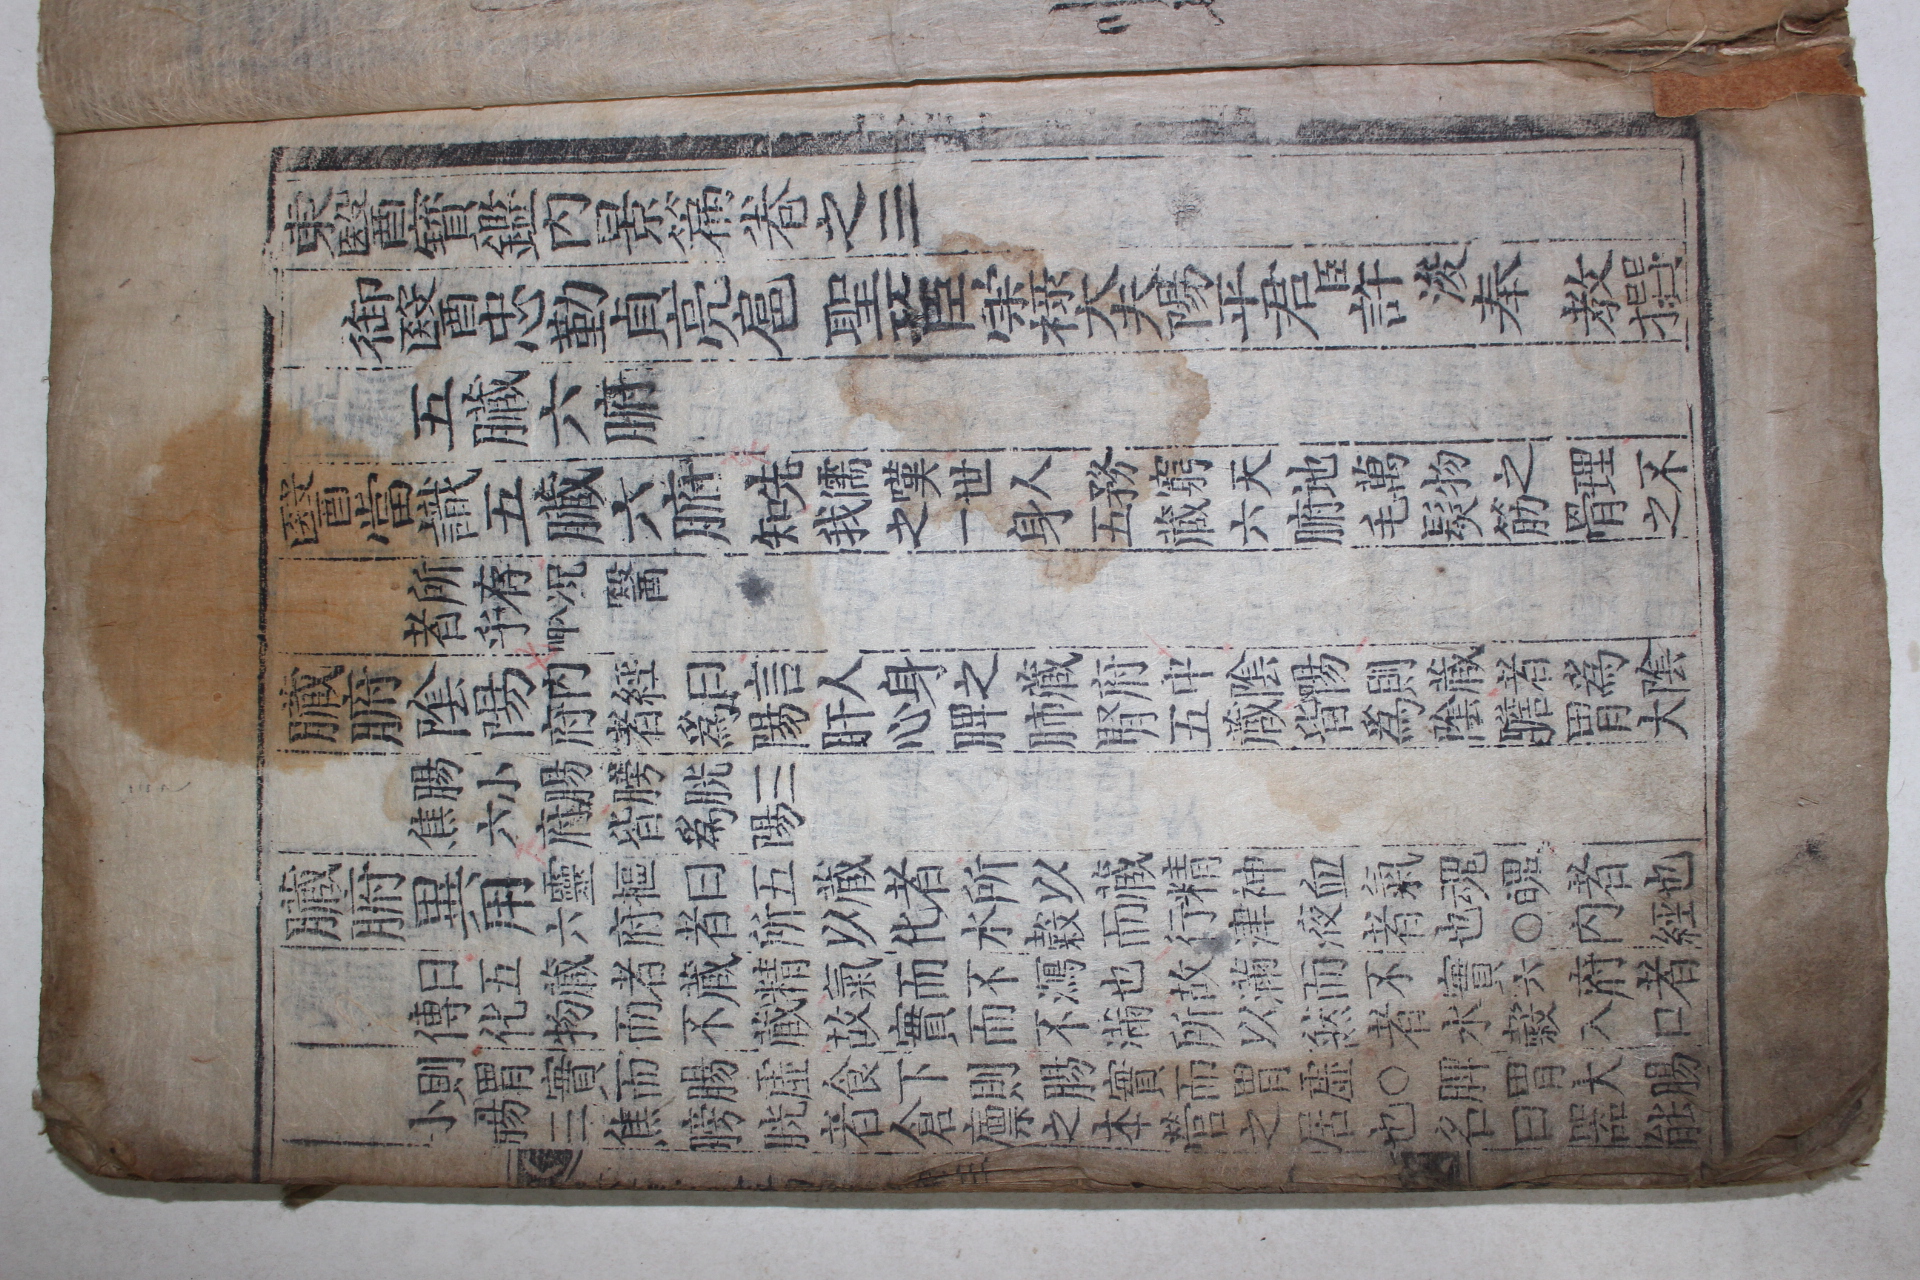 東醫寶鑑內景篇卷之三
御醫忠勤貞亮扈 聖功臣崇祿大夫陽平君臣許 浚奉 敎撰
五臟六腑
醫當識五臟六腑 先儒嘆世人務窮天地萬物之理不
知我之一身五藏六腑毛髮筋骨之
所存況醫
者乎 入門
臟腑陰陽 內經曰言人身之藏府中陰陽則藏者爲陰
府者爲陽肝心脾肺腎五藏皆爲陰膽胃大
腸小腸膀胱三
焦六府皆爲陽
臟腑異用 靈樞曰五藏者所以藏精神血氣魂魄者也
六府者所以化水穀而行津液者也○內經
曰五藏者藏精氣而不瀉也故滿而不實六府者
傳化物而不藏故實而不滿所以然者水穀入口
則胃實而腸虛食下則腸實而胃虛○脾胃大腸
小腸三焦膀胱者倉廩之本營之居也名曰器能